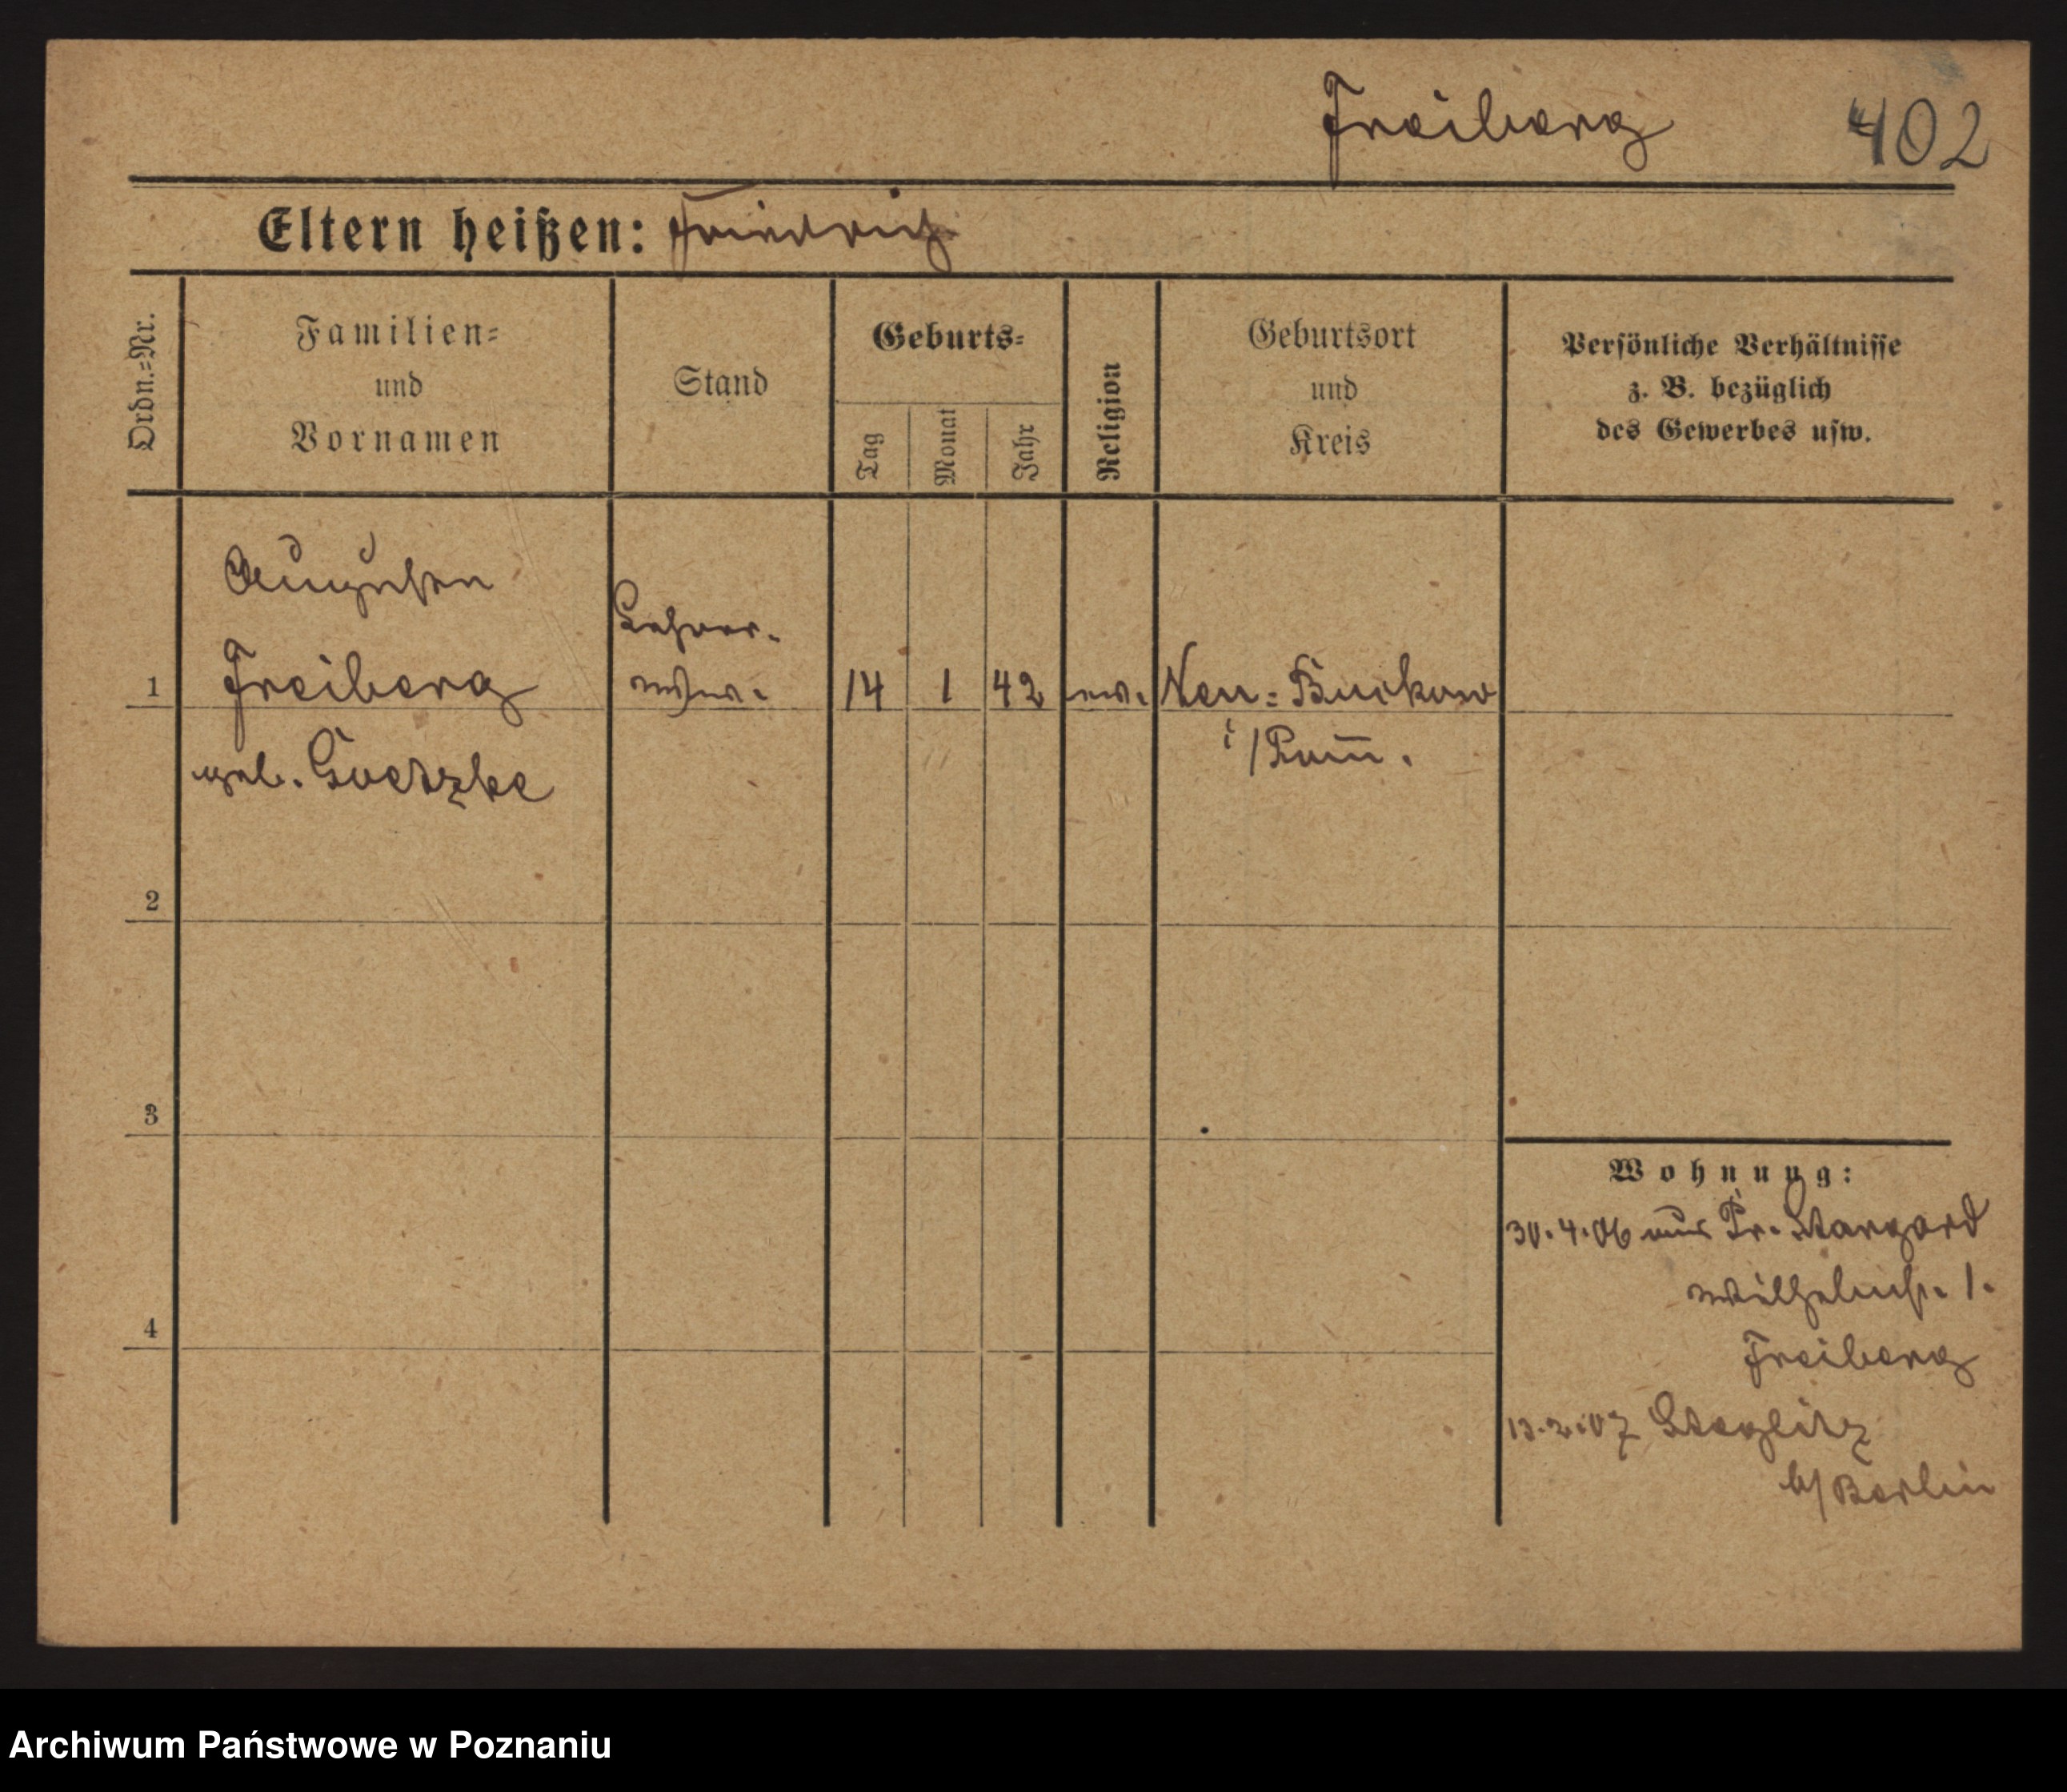 Freiberg 402
Eltern heißen: Friedrich
Ordn.=Nr.
Familien=
und
Vornamen
Stand
Geburts=
Tag
Monat
Jahr
Religion
Geburtsort
und
Kreis
Persönliche Verhältnisse
z. B. bezüglich
des Gewerbes usw.
Auguste
Freiberg
geb. Goetzke
Lehrer-
wwe.
1 14 1 42 ev. Neu=Buckow
i/Pom̄.
2
3
4
Wohnung:
30.4.06 aus Pr. Stargard
Wilhelmstr. 1.
Freiberg
13.2.07 Steglitz
b/Berlin
Archiwum Państwowe w Poznaniu